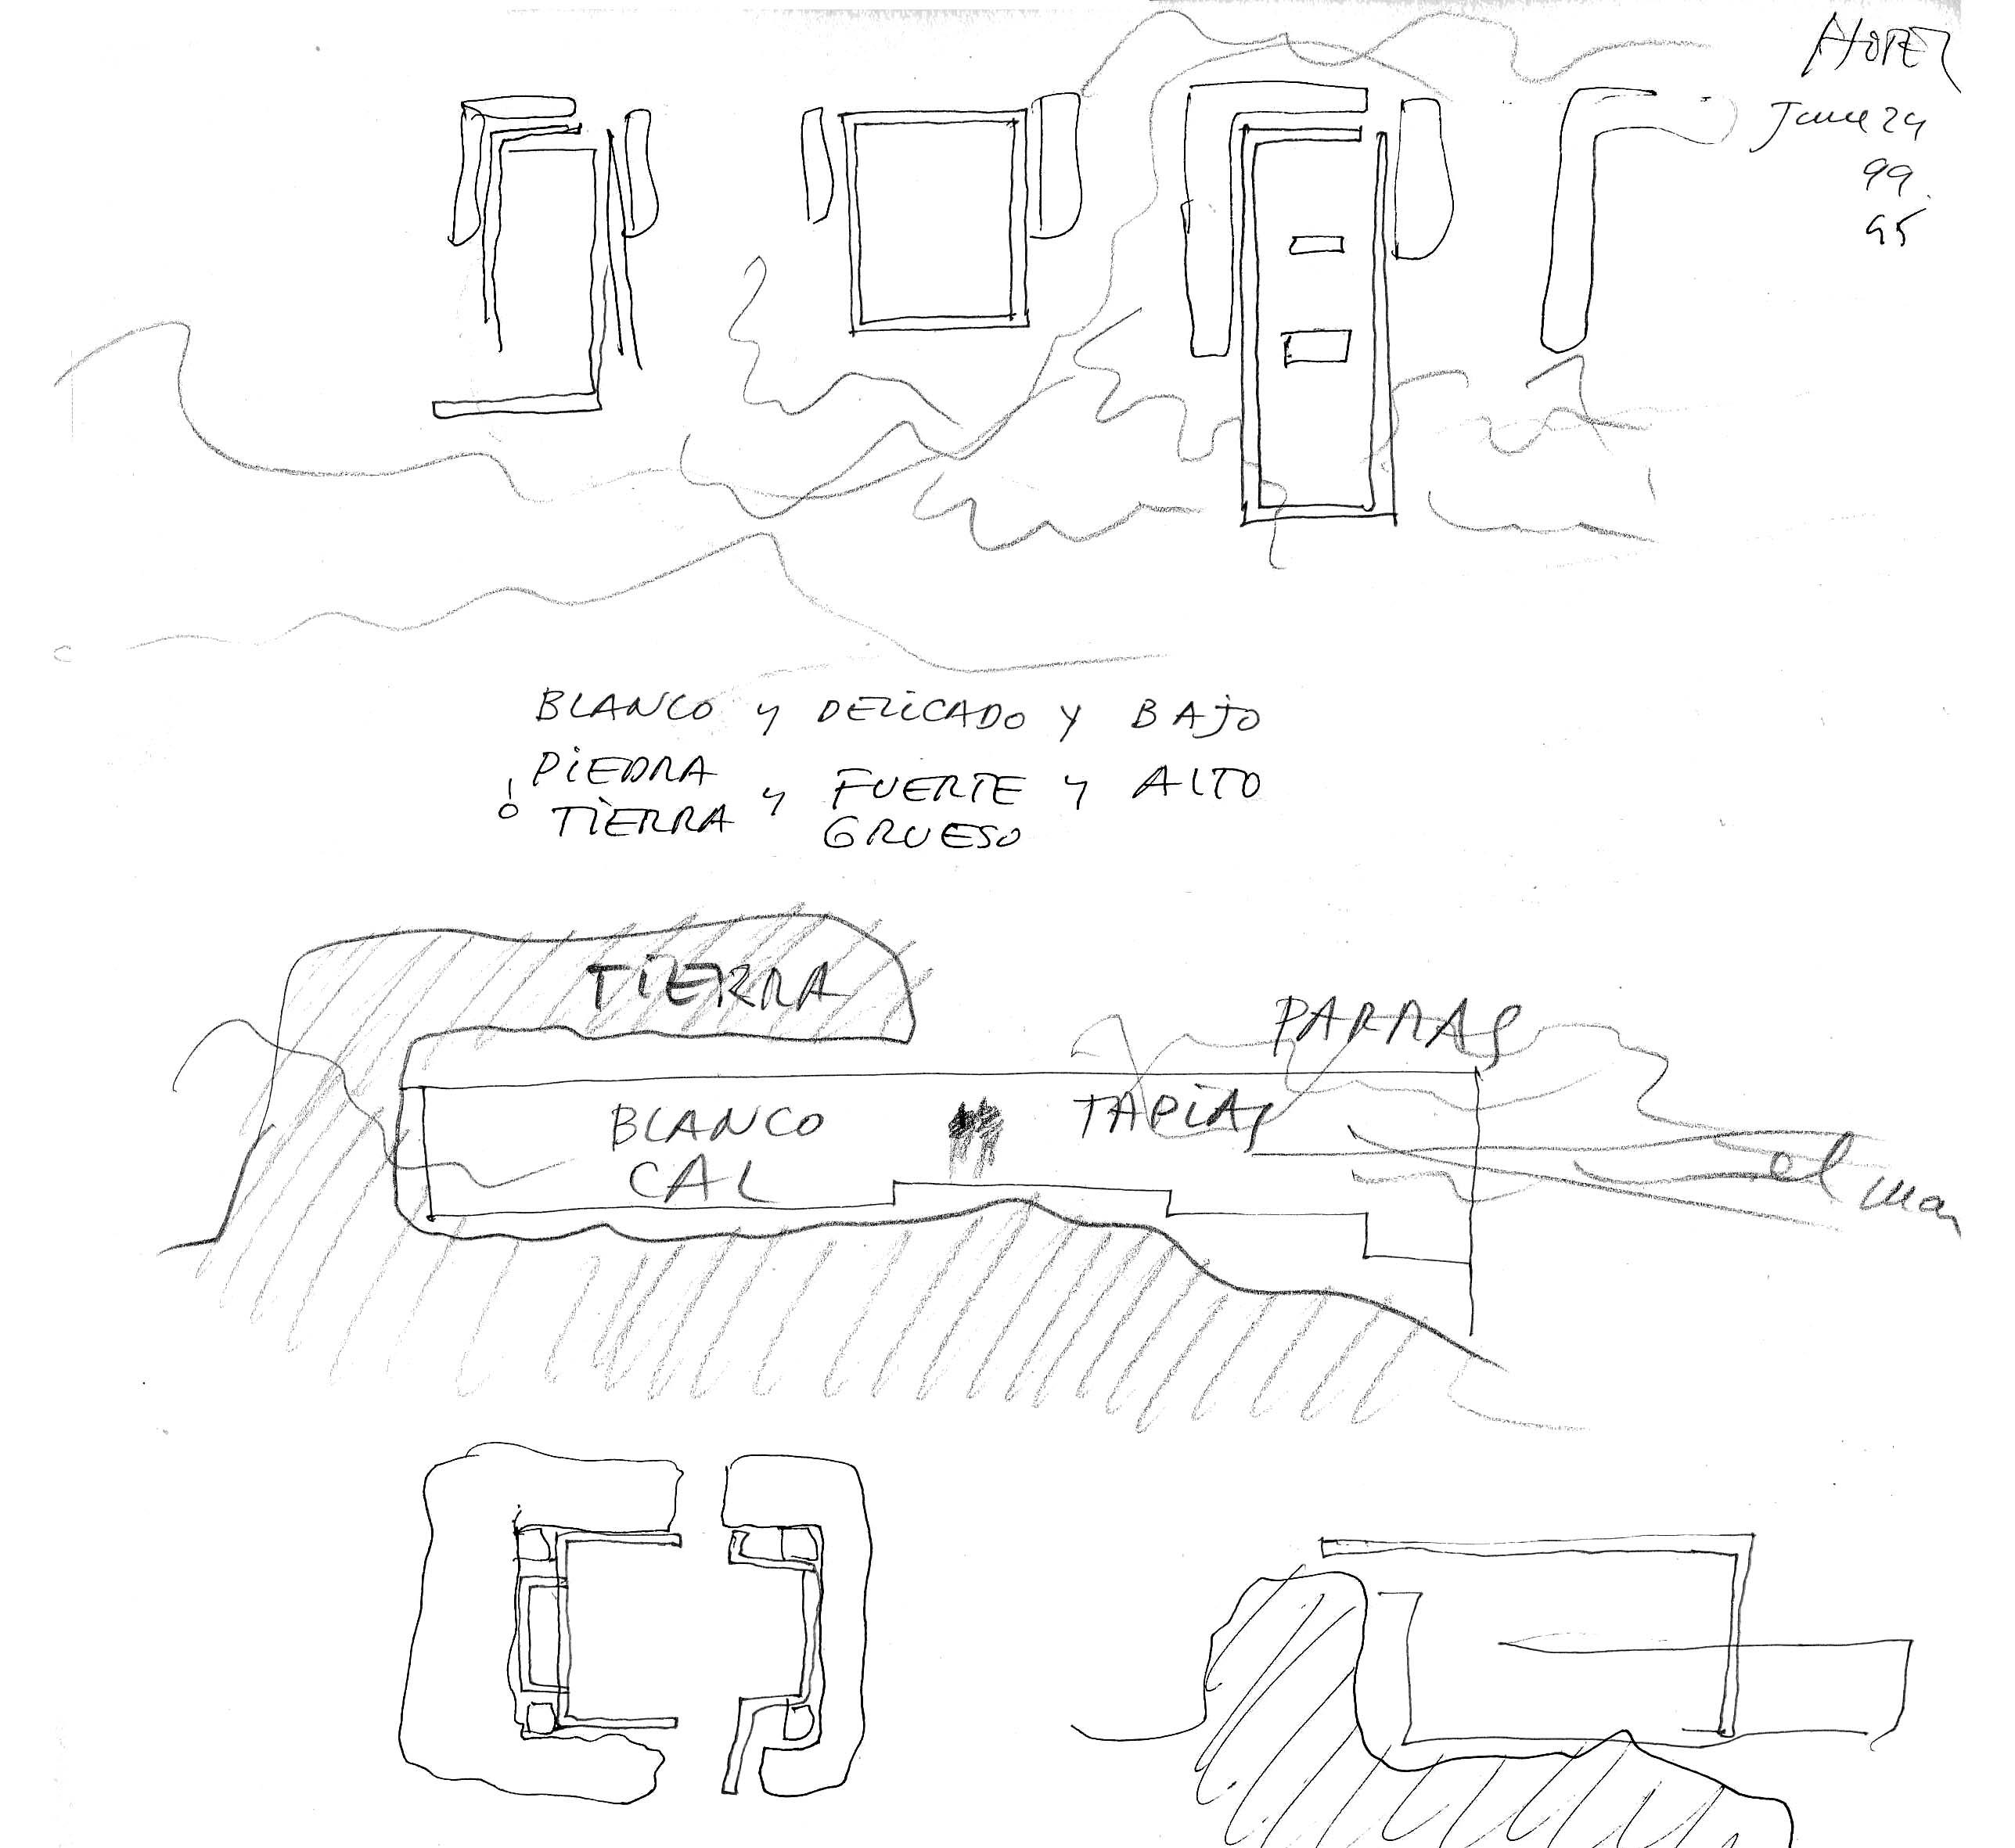 HOTEL
June 24
99
95
BLANCO y DELICADO y BAJO
PIEDRA
ó TIERRA y FUERTE y ALTO
GRUESO
TIERRA
PARRAS
BLANCO TAPIAS
CAL
el mar